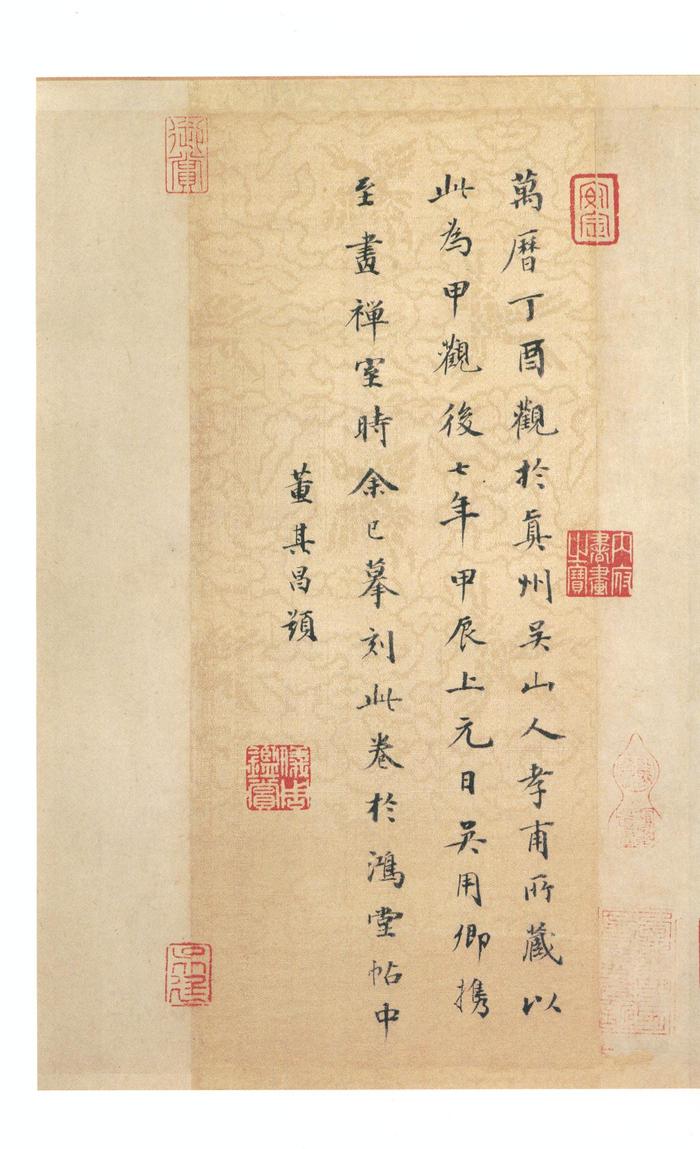 萬曆丁酉觀於真州吳山人孝甫所藏以
此為甲觀後七年甲辰上元日吳用卿携
至畫禪室時余已摹刻此卷於鴻堂帖中
董其昌題
御賞
內府書畫之寶